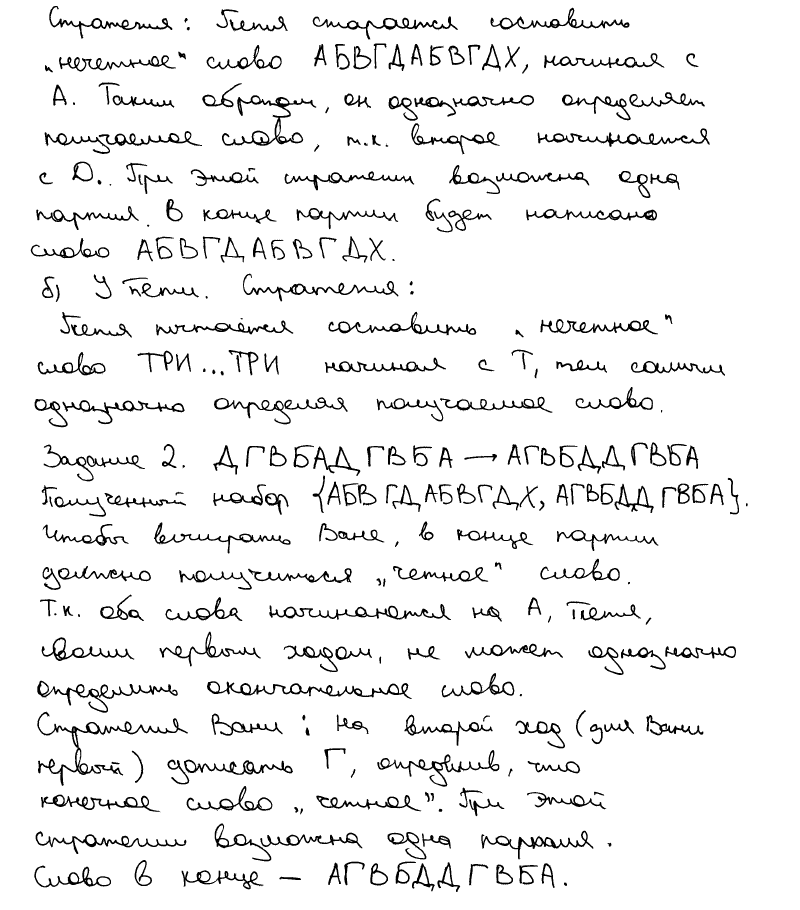 Стратегия: Петя старается составить
„нечетное" слово АБВГДАБВГДХ, начиная с
А. Таким образом, он однозначно определяет
получаемое слово, т.к. второе начинается
с D. При этой стратегии возможна одна
партия. В конце партии будет написано
слово АБВГДАБВГДХ.
б) У Пети. Стратегия:
Петя пытается составить „нечетное"
слово ТРИ...ТРИ начиная с Т, тем самым
однозначно определяя получаемое слово.
Задание 2. ДГВБАДГВБА → АГВБДДГВБА
Полученный набор {АБВГДАБВГДХ, АГВБДДГВБА}.
Чтобы выиграть Ване, в конце партии
должно получиться „четное" слово.
Т.к. оба слова начинаются на А, Петя,
своим первым ходом, не может однозначно
определить окончательное слово.
Стратегия Вани: На второй ход (для Вани
первый) дописать Г, определив, что
конечное слово „четное". При этой
стратегии возможна одна партия.
Слово в конце – АГВБДДГВБА.